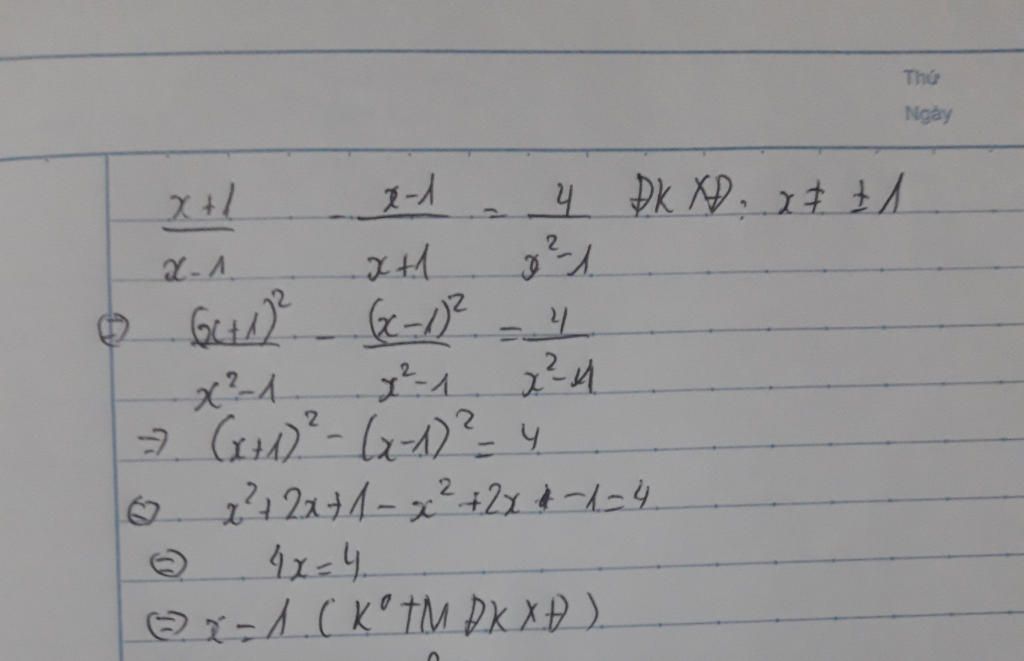 Thứ
Ngày
x+1 / x-1 - x-1 / x+1 = 4 / x²-1 ĐKXĐ: x ≠ ±1
⇔ (x+1)² / x²-1 - (x-1)² / x²-1 = 4 / x²-1
⇒ (x+1)² - (x-1)² = 4
⇔ x²+2x+1-x²+2x-1=4
⇔ 4x=4
⇔ x=1 (K° TM ĐKXĐ)